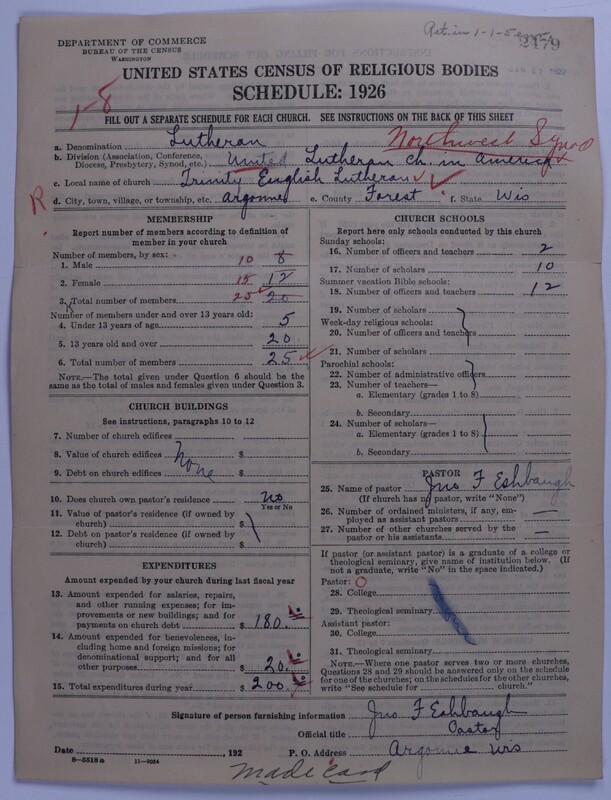 Ret. in 1-1-5
2479
DEPARTMENT OF COMMERCE
BUREAU OF THE CENSUS
WASHINGTON
UNITED STATES CENSUS OF RELIGIOUS BODIES
SCHEDULE: 1926
1-8
FILL OUT A SEPARATE SCHEDULE FOR EACH CHURCH. SEE INSTRUCTIONS ON THE BACK OF THIS SHEET
a. Denomination Lutheran Northwest Synod
b. Division (Association, Conference, Diocese, Presbytery, Synod, etc.) United Lutheran Ch. in America
c. Local name of church Trinity English Lutheran
R
d. City, town, village, or township, etc. Argonne e. County Forest f. State Wis
MEMBERSHIP
Report number of members according to definition of
member in your church
Number of members, by sex:
1. Male 10 8
2. Female 15 12
3. Total number of members 25 20
Number of members under and over 13 years old:
4. Under 13 years of age 5
5. 13 years old and over 20
6. Total number of members 25
NOTE.—The total given under Question 6 should be the
same as the total of males and females given under Question 3.
CHURCH BUILDINGS
See instructions, paragraphs 10 to 12
7. Number of church edifices
8. Value of church edifices $ None
9. Debt on church edifices $
10. Does church own pastor's residence No
Yes or No
11. Value of pastor's residence (if owned by
church) $
12. Debt on pastor's residence (if owned by
church) $
EXPENDITURES
Amount expended by your church during last fiscal year
13. Amount expended for salaries, repairs,
and other running expenses; for im-
provements or new buildings; and for
payments on church debt $ 180.
14. Amount expended for benevolences, in-
cluding home and foreign missions; for
denominational support; and for all
other purposes $ 20.
15. Total expenditures during year $ 200.
CHURCH SCHOOLS
Report here only schools conducted by this church
Sunday schools:
16. Number of officers and teachers 2
17. Number of scholars 10
Summer vacation Bible schools:
18. Number of officers and teachers 12
19. Number of scholars
Week-day religious schools:
20. Number of officers and teachers
21. Number of scholars
Parochial schools:
22. Number of administrative officers
23. Number of teachers—
a. Elementary (grades 1 to 8)
b. Secondary
24. Number of scholars—
a. Elementary (grades 1 to 8)
b. Secondary
PASTOR
25. Name of pastor Jno F Eshbaugh
(If church has no pastor, write "None")
26. Number of ordained ministers, if any, em-
ployed as assistant pastors —
27. Number of other churches served by the
pastor or his assistants —
If pastor (or assistant pastor) is a graduate of a college or
theological seminary, give name of institution below. (If
not a graduate, write "No" in the space indicated.)
Pastor: O
28. College
29. Theological seminary
Assistant pastor:
30. College
31. Theological seminary
NOTE.—Where one pastor serves two or more churches,
Questions 28 and 29 should be answered only on the schedule
for one of the churches; on the schedules for the other churches,
write "See schedule for church."
Signature of person furnishing information Jno F Eshbaugh
Official title Pastor
Date , 192 P. O. Address Argonne Wis
8—5518a 11—9034
made card